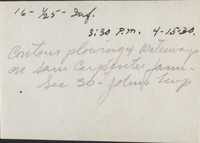 16 - 1/25 - Inf.
3:30 P.M. 4-15-30.
Contour plowing & waterways
on Sam Carpenter farm -
Sec 30 - Johns Twp